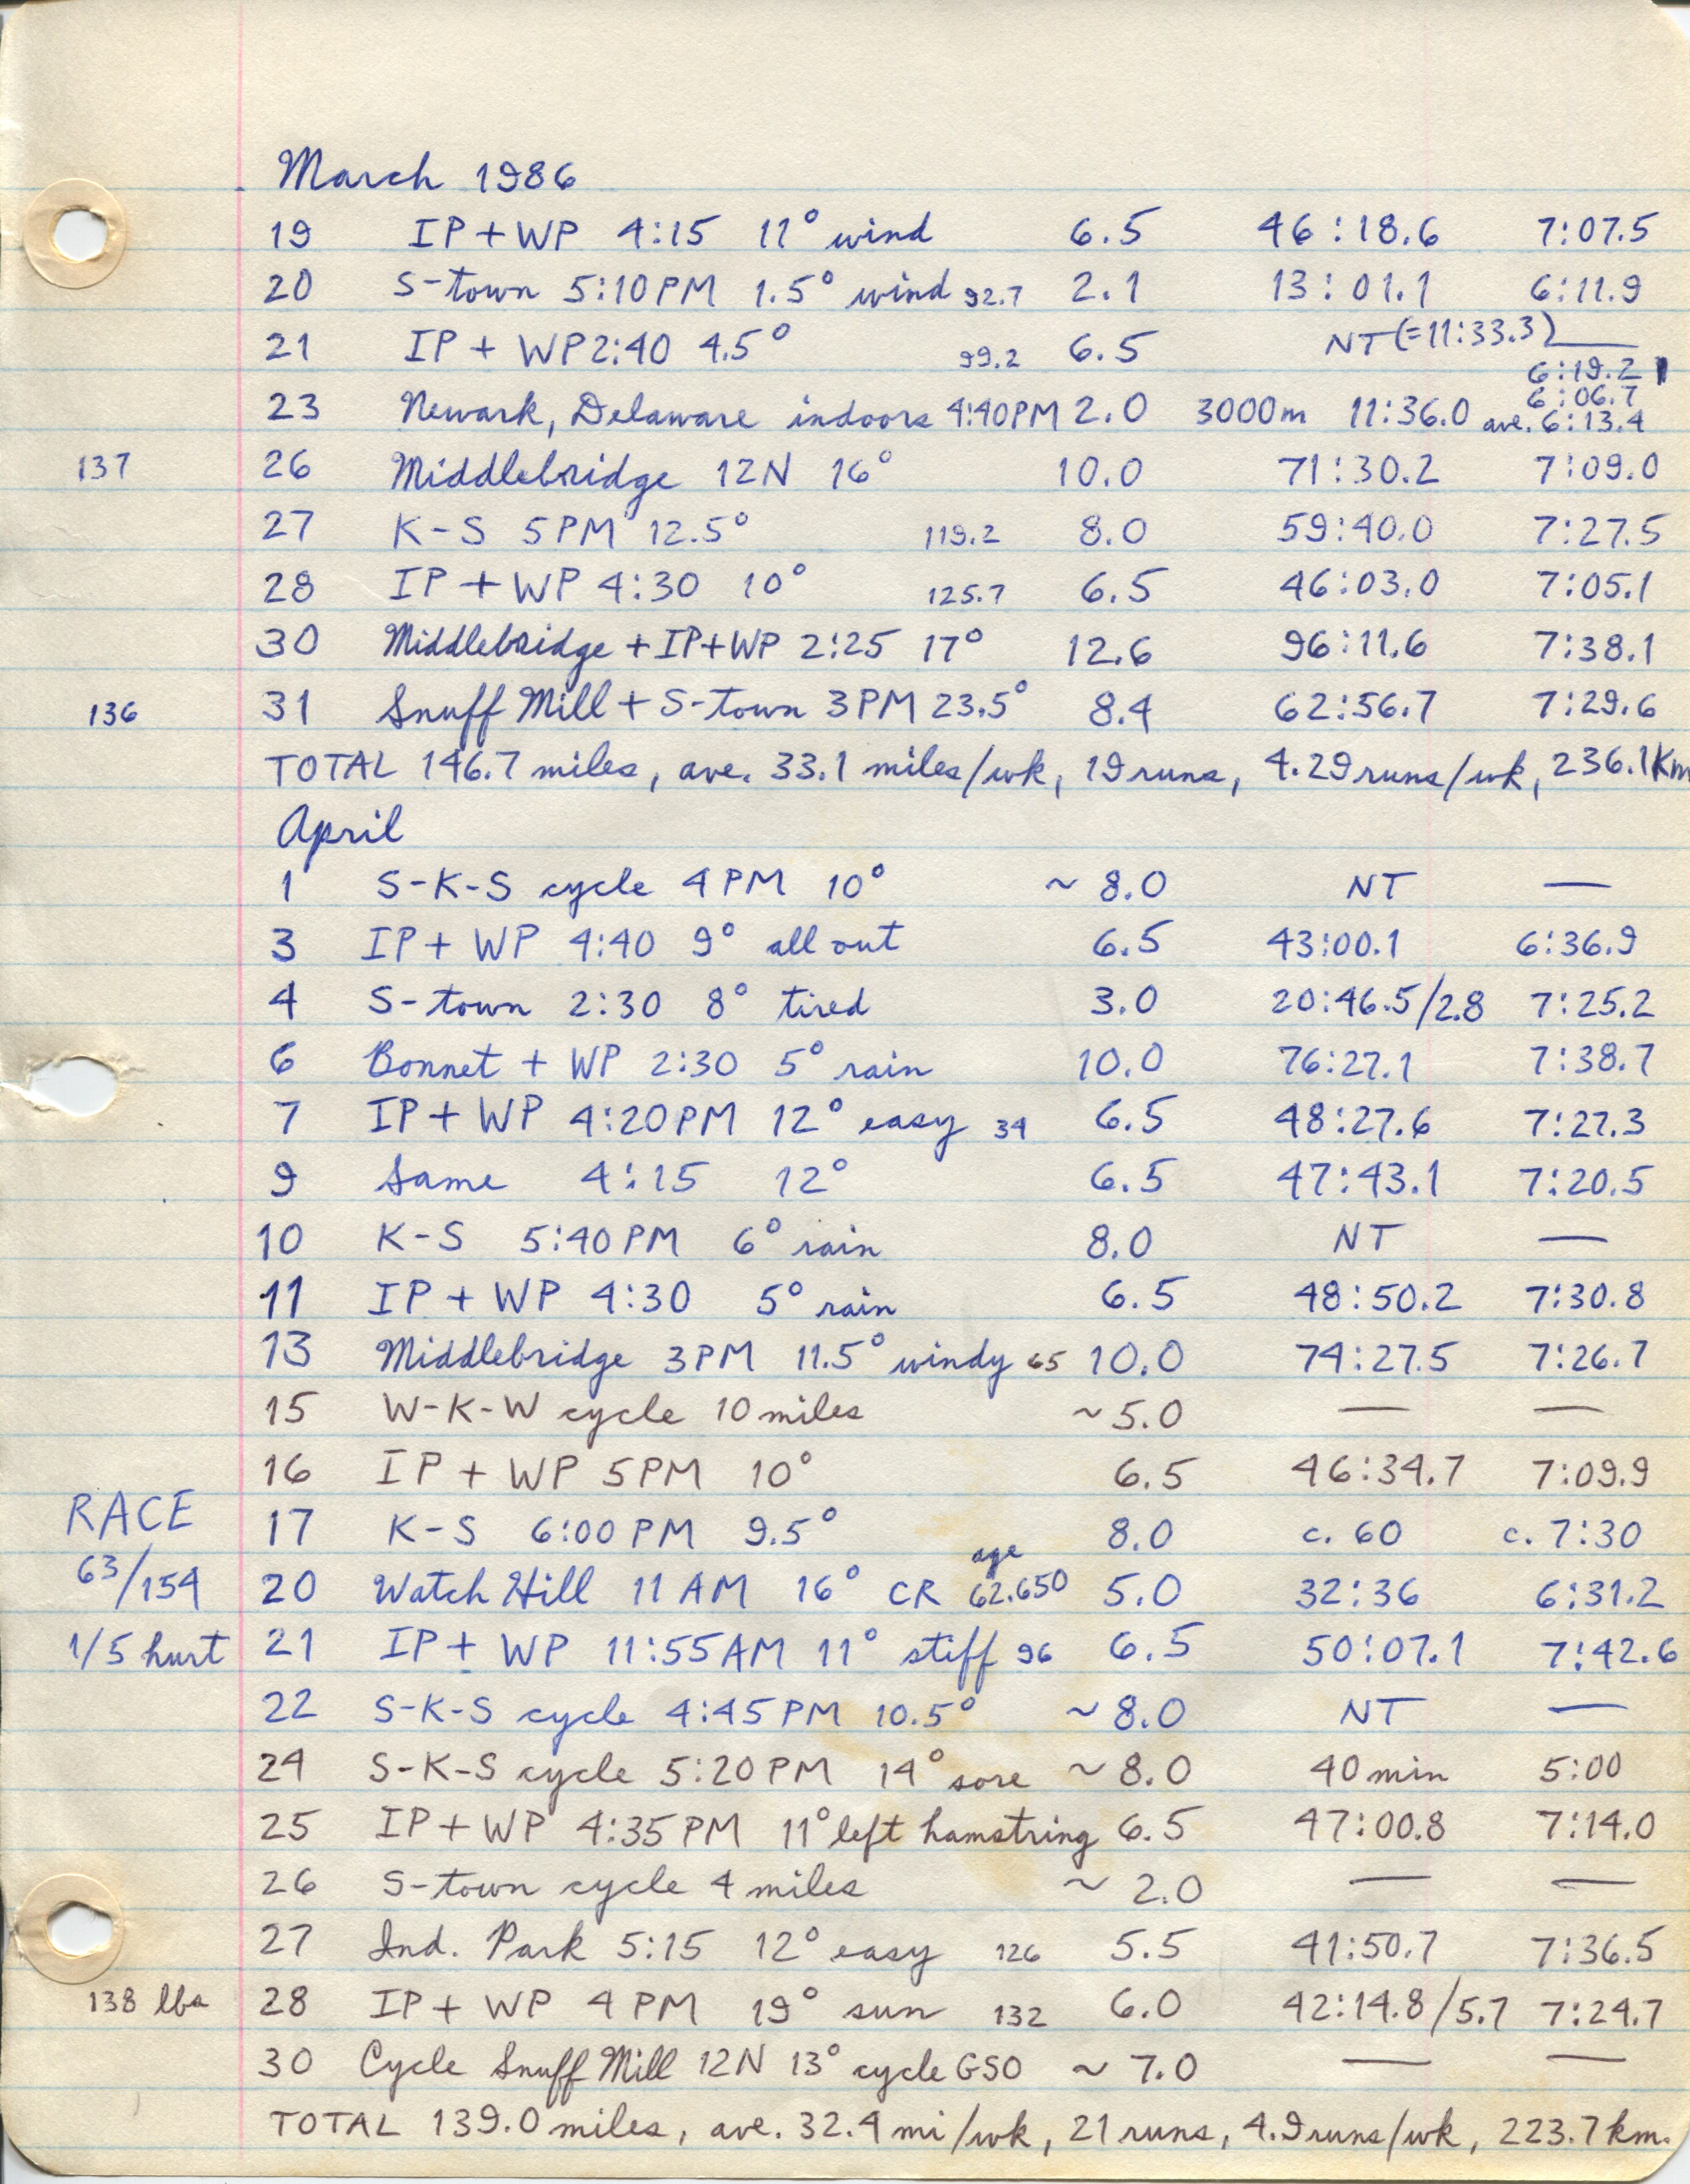 March 1986
19 IP + WP 4:15 11° wind 6.5 46:18.6 7:07.5
20 S-town 5:10 PM 1.5° wind 92.7 2.1 13:01.1 6:11.9
21 IP + WP 2:40 4.5° 99.2 6.5 NT (=11:33.3) —
6:19.2
6:06.7
23 Newark, Delaware indoors 4:40 PM 2.0 3000m 11:36.0 ave. 6:13.4
137 26 Middlebridge 12N 16° 10.0 71:30.2 7:09.0
27 K-S 5 PM 12.5° 119.2 8.0 59:40.0 7:27.5
28 IP + WP 4:30 10° 125.7 6.5 46:03.0 7:05.1
30 Middlebridge + IP+WP 2:25 17° 12.6 96:11.6 7:38.1
136 31 Snuff Mill + S-town 3 PM 23.5° 8.4 62:56.7 7:29.6
TOTAL 146.7 miles, ave. 33.1 miles/wk, 19 runs, 4.29 runs/wk, 236.1 Km
April
1 S-K-S cycle 4 PM 10° ~ 8.0 NT —
3 IP + WP 4:40 9° all out 6.5 43:00.1 6:36.9
4 S-town 2:30 8° tired 3.0 20:46.5/2.8 7:25.2
6 Bonnet + WP 2:30 5° rain 10.0 76:27.1 7:38.7
7 IP + WP 4:20 PM 12° easy 34 6.5 48:27.6 7:27.3
9 Same 4:15 12° 6.5 47:43.1 7:20.5
10 K-S 5:40 PM 6° rain 8.0 NT —
11 IP + WP 4:30 5° rain 6.5 48:50.2 7:30.8
13 Middlebridge 3 PM 11.5° windy 65 10.0 74:27.5 7:26.7
15 W-K-W cycle 10 miles ~ 5.0 — —
16 IP + WP 5 PM 10° 6.5 46:34.7 7:09.9
RACE 17 K-S 6:00 PM 9.5° 8.0 c. 60 c. 7:30
63/154 20 Watch Hill 11 AM 16° CR age 62.650 5.0 32:36 6:31.2
1/5 hurt 21 IP + WP 11:55 AM 11° stiff 96 6.5 50:07.1 7:42.6
22 S-K-S cycle 4:45 PM 10.5° ~ 8.0 NT —
24 S-K-S cycle 5:20 PM 14° sore ~ 8.0 40 min 5:00
25 IP + WP 4:35 PM 11° left hamstring 6.5 47:00.8 7:14.0
26 S-town cycle 4 miles ~ 2.0 — —
27 Ind. Park 5:15 12° easy 126 5.5 41:50.7 7:36.5
138 lbs 28 IP + WP 4 PM 19° sun 132 6.0 42:14.8/5.7 7:24.7
30 Cycle Snuff Mill 12N 13° cycle GSO ~ 7.0 — —
TOTAL 139.0 miles, ave. 32.4 mi/wk, 21 runs, 4.9 runs/wk, 223.7 km.